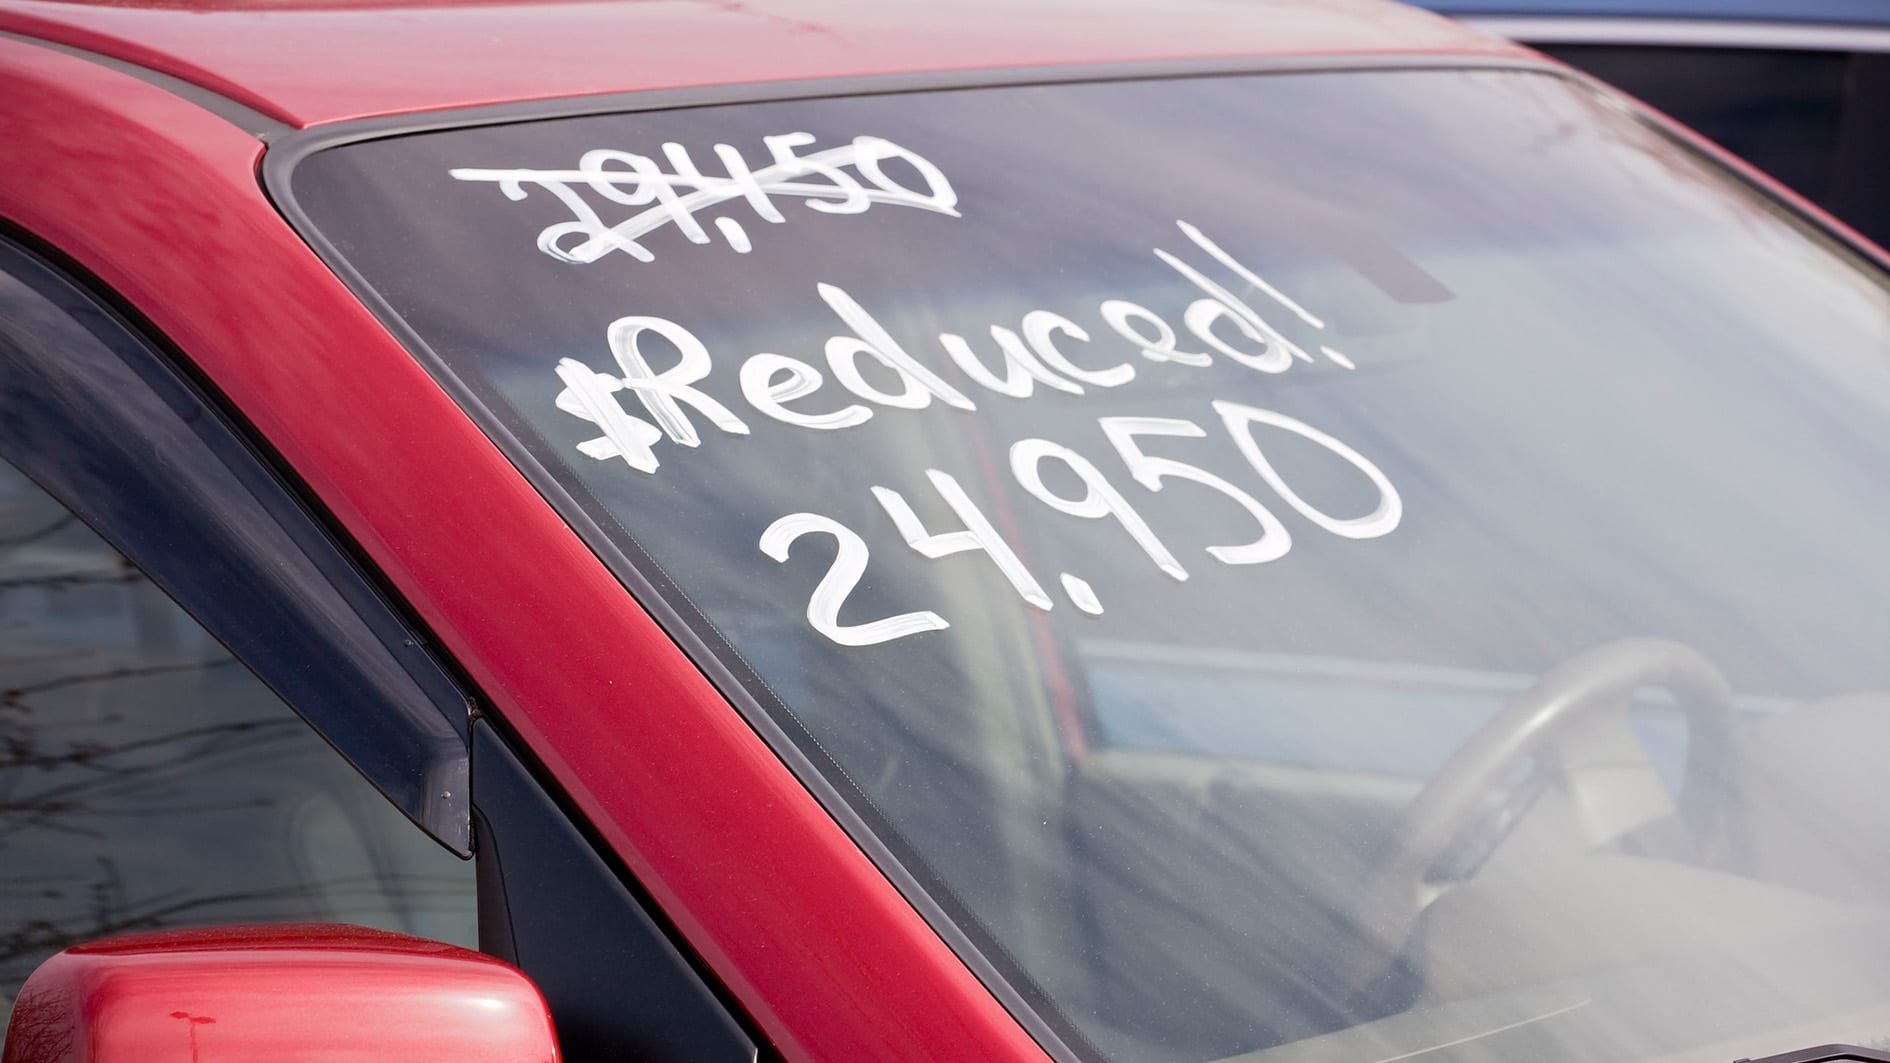 29,450
$Reduced!
24,950